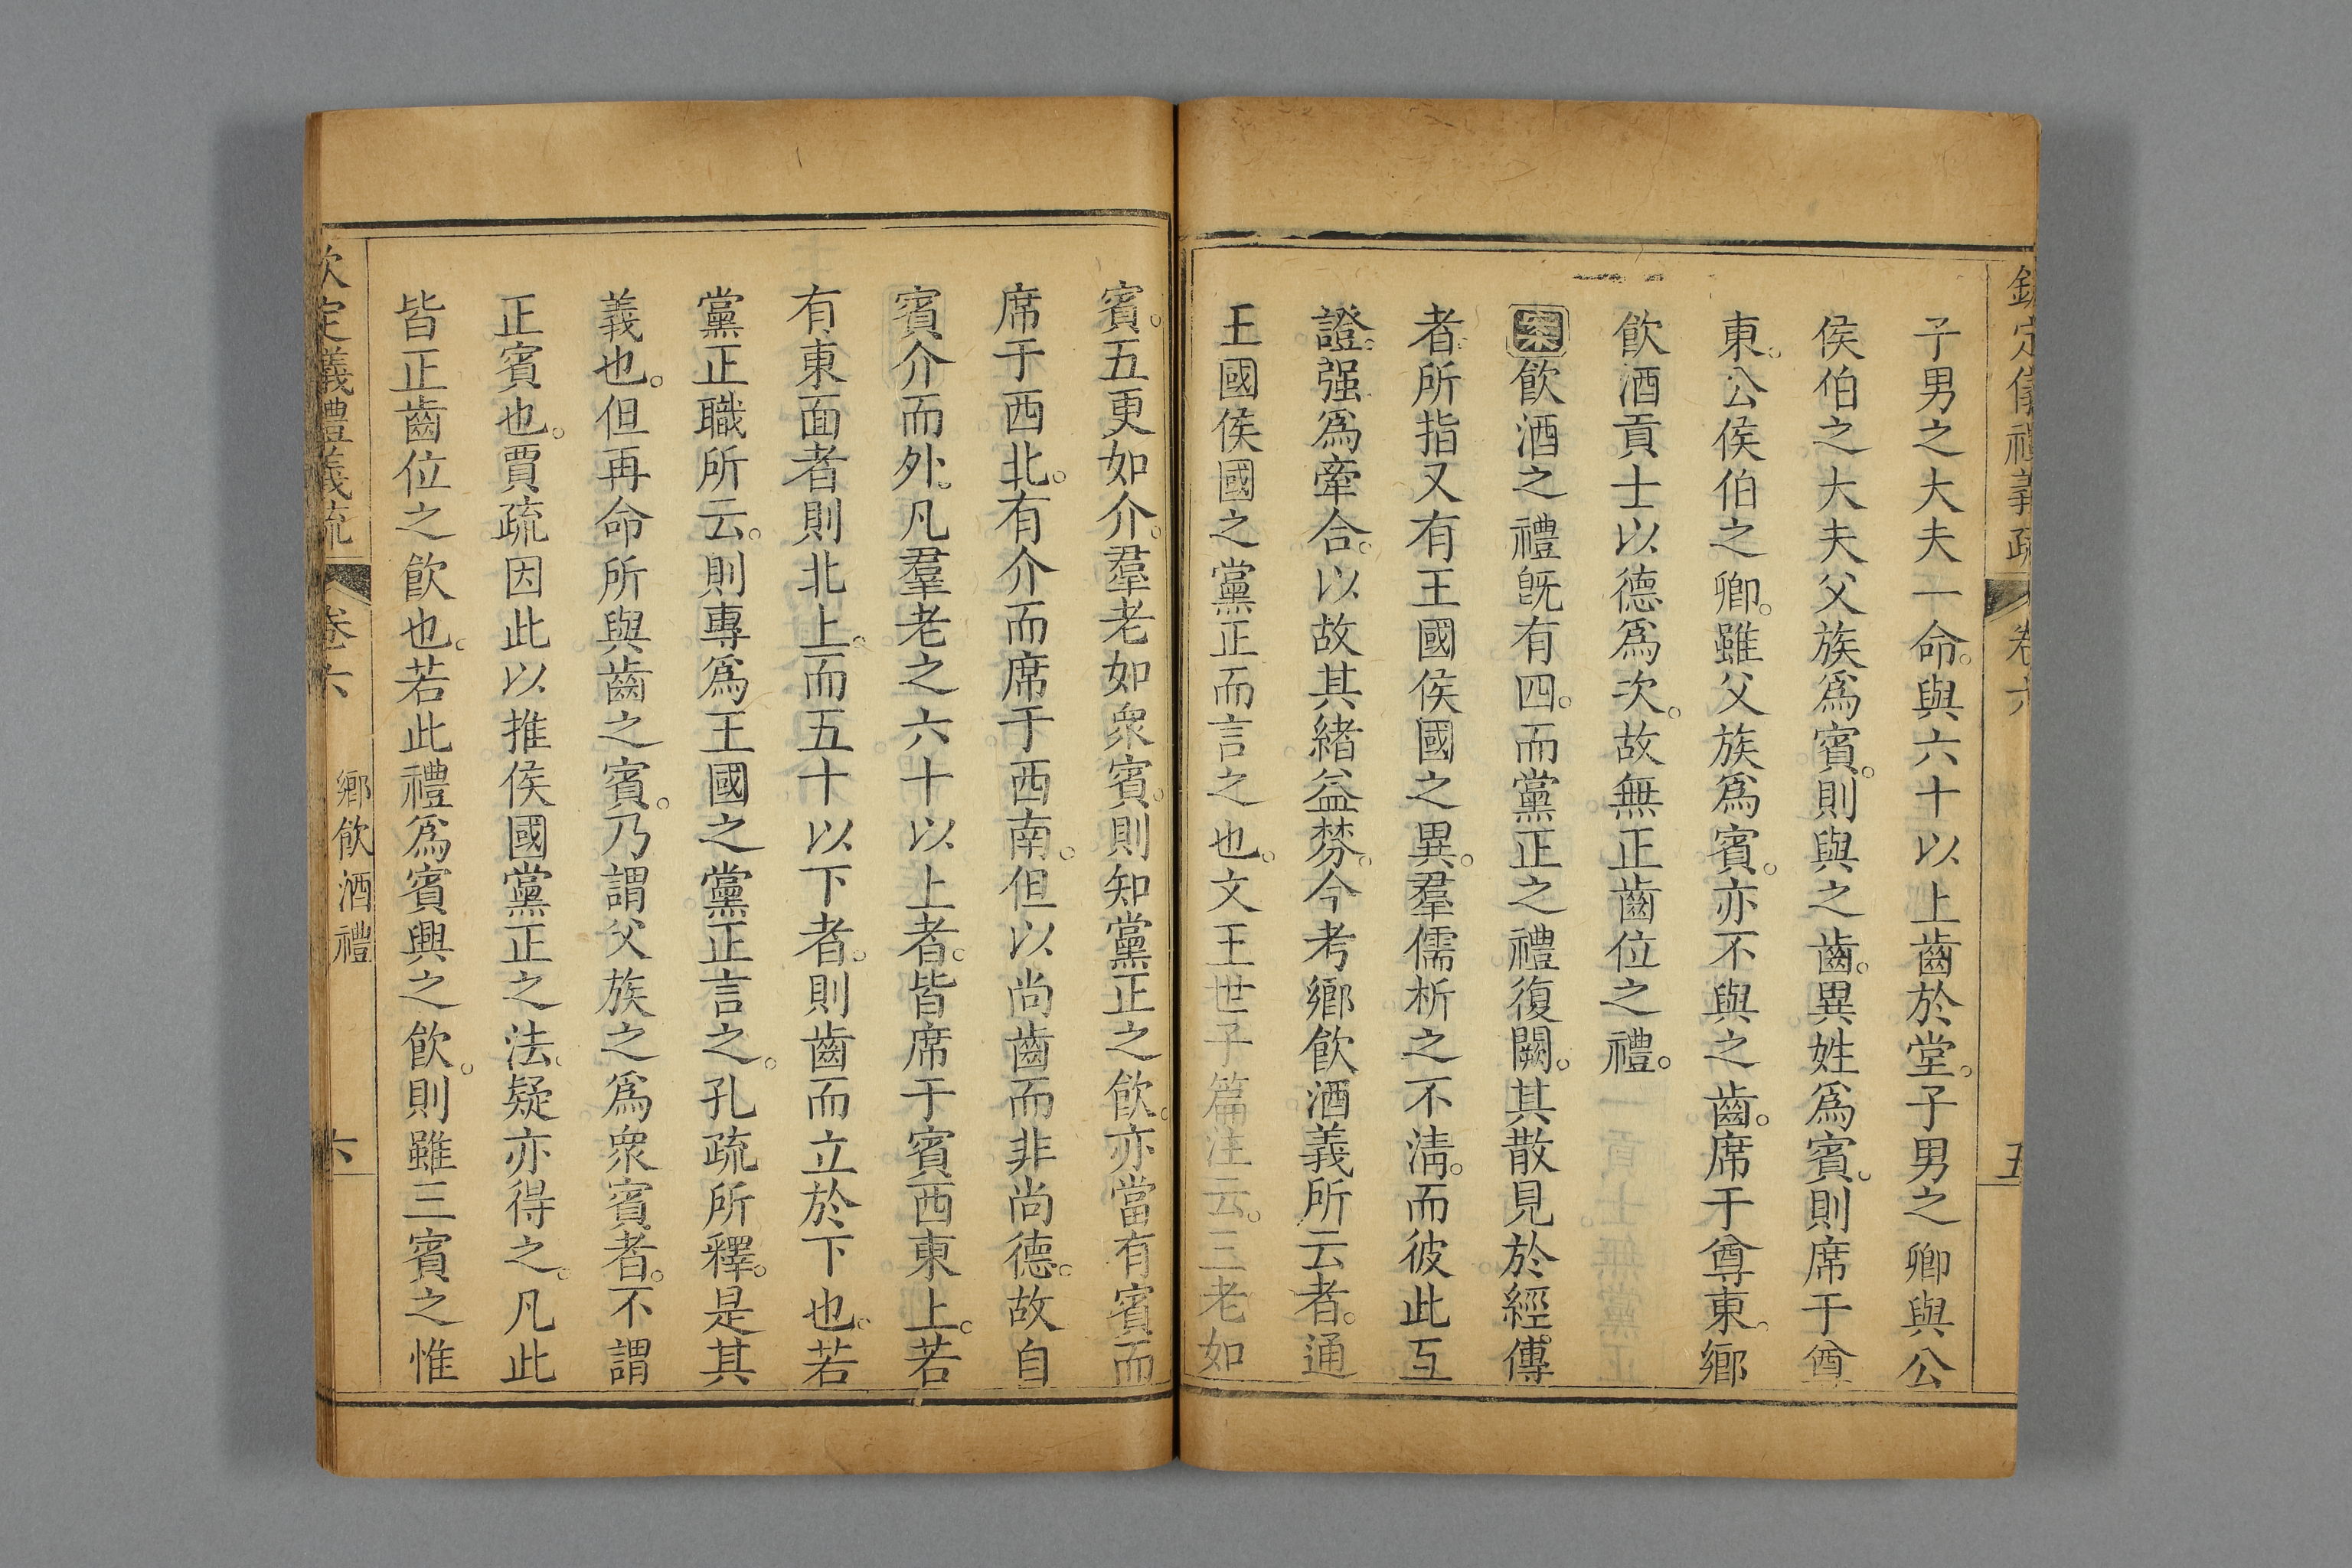 欽定儀禮義疏 卷六 五
子男之大夫一命。與六十以上齒於堂。子男之卿與公
侯伯之大夫父族爲賓。則與之齒。異姓爲賓。則席于尊
東。公侯伯之卿。雖父族爲賓。亦不與之齒。席于尊東。鄉
飲酒貢士以德爲次。故無正齒位之禮。
案飲酒之禮旣有四。而黨正之禮復闕。其散見於經傳
者。所指又有王國侯國之異。羣儒析之不淸。而彼此互
證。强爲牽合。以故其緒益棼。今考鄉飲酒義所云者。通
王國侯國之黨正而言之也。文王世子篇注云。三老如
賓。五更如介。羣老如衆賓。則知黨正之飲。亦當有賓而
席于西北。有介而席于西南。但以尚齒而非尚德。故自
賓介而外。凡羣老之六十以上者。皆席于賓西東上。若
有東面者則北上。而五十以下者。則齒而立於下也。若
黨正職所云。則專爲王國之黨正言之。孔疏所釋。是其
義也。但再命所與齒之賓。乃謂父族之爲衆賓者。不謂
正賓也。賈疏因此以推侯國黨正之法。疑亦得之。凡此
皆正齒位之飲也。若此禮爲賓興之飲。則雖三賓之惟
欽定儀禮義疏 卷六 鄉飲酒禮 六